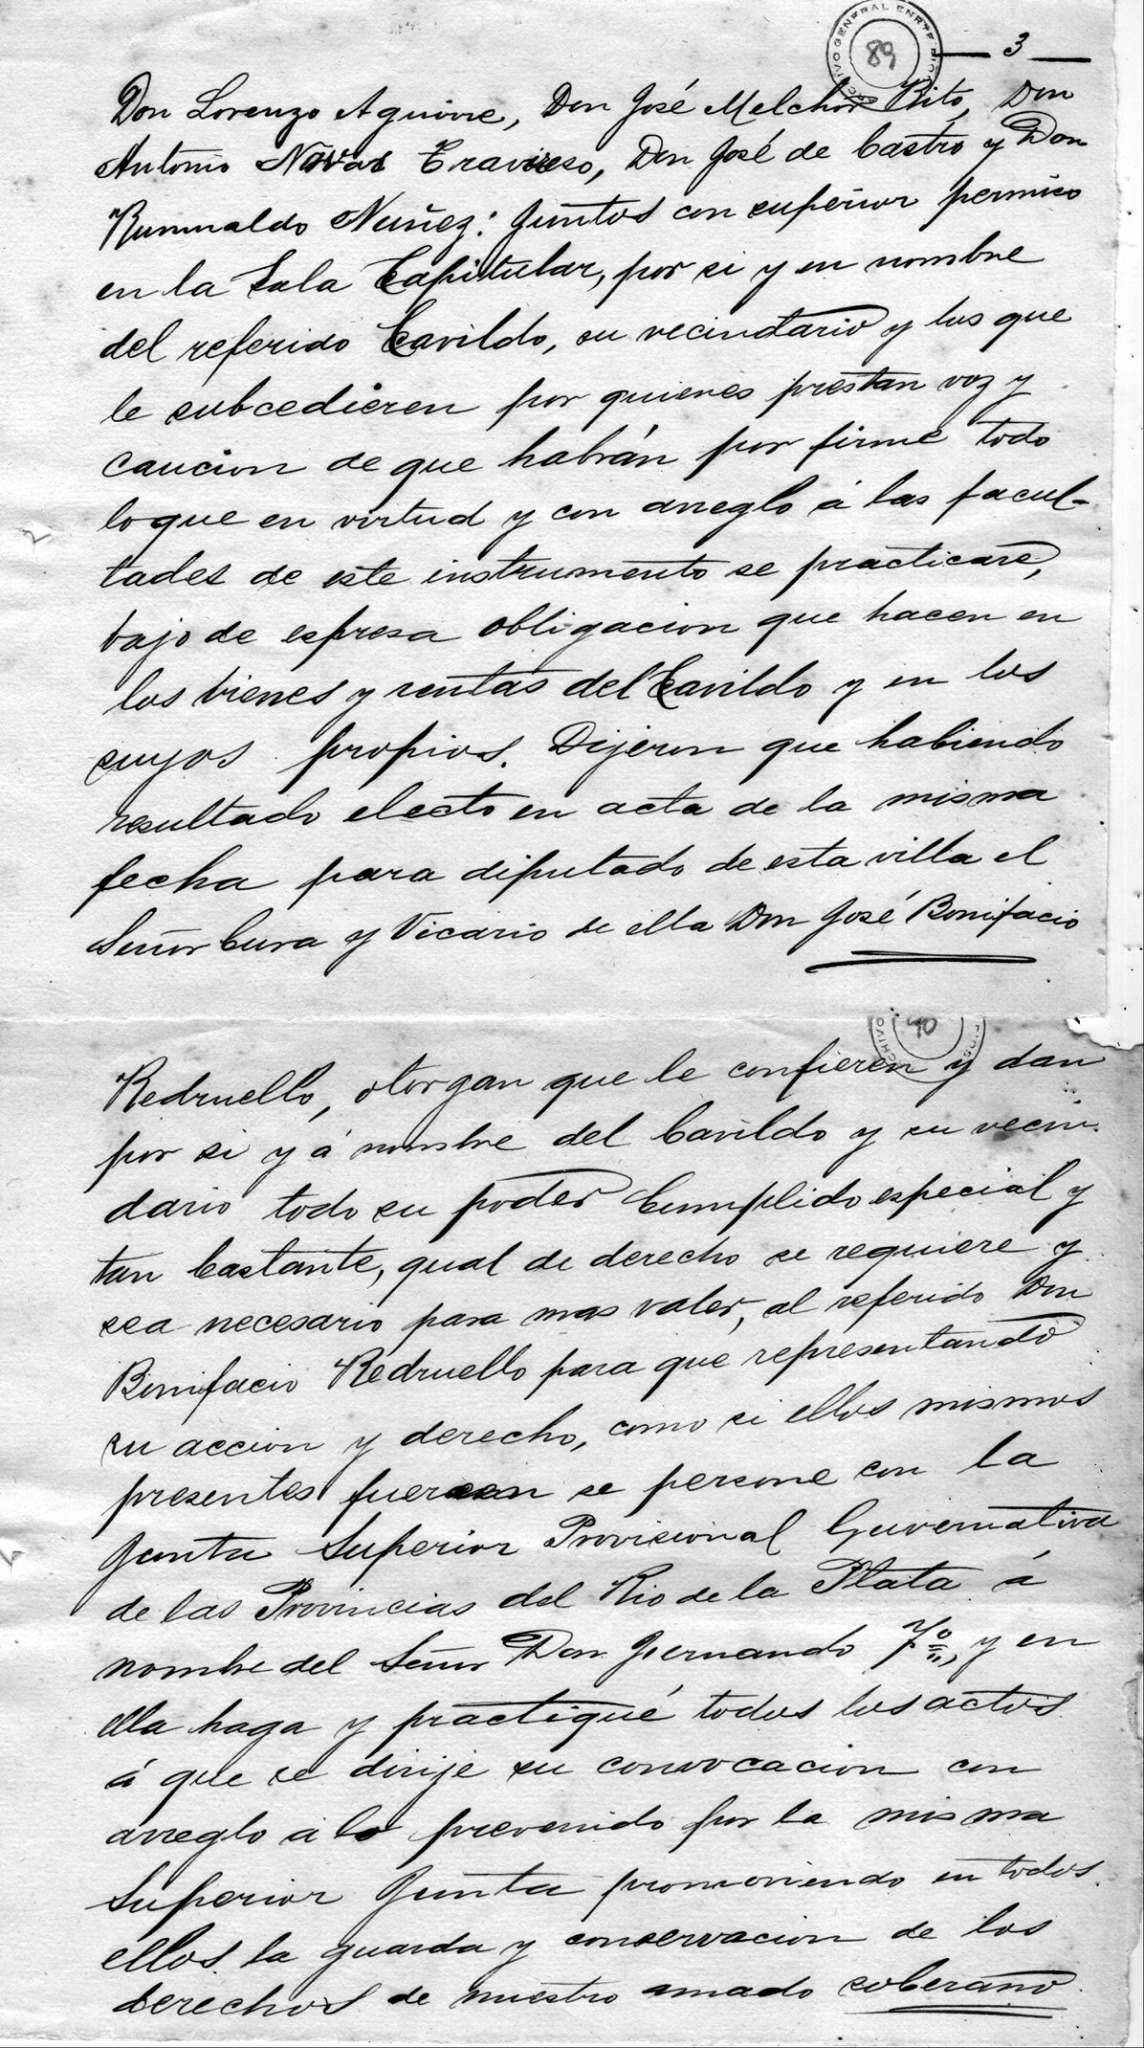 89
— 3 —
Don Lorenzo Aguirre, Don José Melchor Brito, Don
Antonio Navas Travieso, Don José de Castro y Don
Rumualdo Nuñez: Juntos con superior permiso
en la Sala Capitular, por si y en nombre
del referido Cavildo, su vecindario y los que
le subcedieren por quienes prestan voz y
caucion de que habrán por firme todo
loque en virtud y con arreglo á las facul-
tades de este instrumento se practicare,
bajo de espresa obligacion que hacen en
los bienes y rentas del Cavildo y en los
suyos propios. Dijeron que habiendo
resultado electo en acta de la misma
fecha para diputado de esta villa el
Señor Cura y Vicario de ella Don José Bonifacio
90
Redruello, otorgan que le confieren y dan
por si y á nombre del Cavildo y su vecin-
dario todo su poder Cumplido especial y
tan bastante, qual de derecho se requiere y
sea necesario para mas valer, al referido Don
Bonifacio Redruello para que representando
su accion y derecho, como si ellos mismos
presentes fuersen se persone con la
Junta Superior Provisional Guvernativa
de las Provincias del Rio de la Plata á
nombre del Señor Don Fernando 7º, y en
ella haga y practiqué todos los actos
á que se dirije su convocacion con
arreglo á lo prevenido por la misma
Superior Junta promoviendo en todos
ellos la guarda y conservacion de los
derechos de nuestro amado soberano